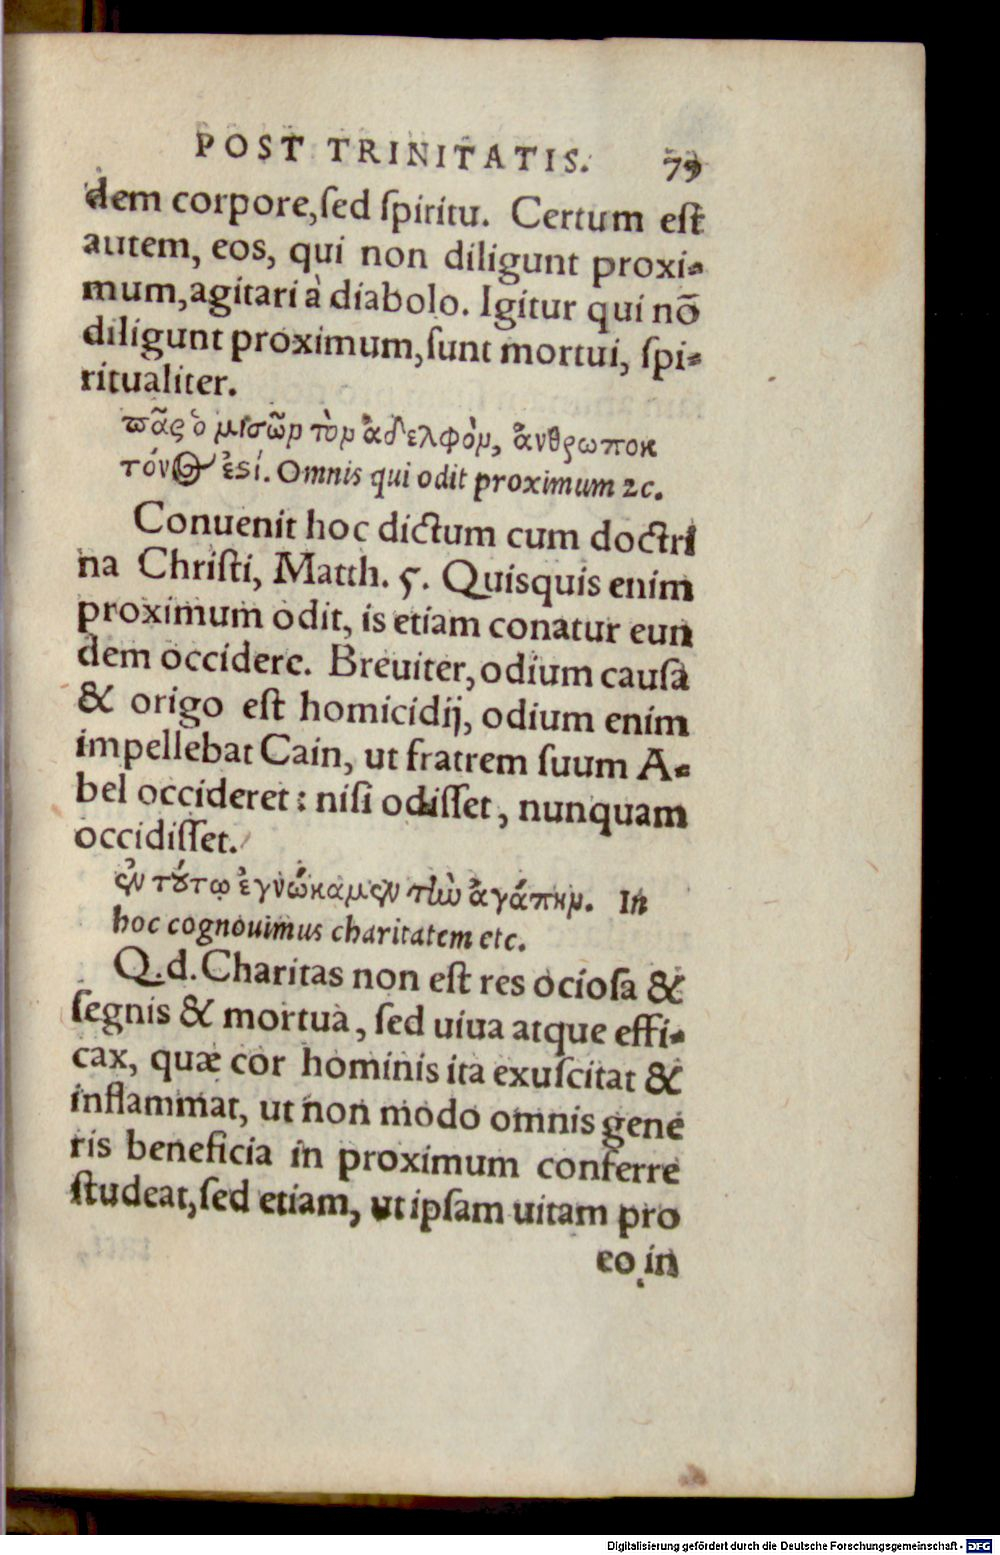 POST TRINITATIS. 79
dem corpore, ſed ſpiritu. Certum eſt
autem, eos, qui non diligunt proxi⸗
mum, agitari à diabolo. Igitur qui nõ
diligunt proximum, ſunt mortui, ſpi⸗
ritualiter.
πᾶς ὁ μισῶν τὸν ἀδελφὸν, ἀνθρωποκ
τόνος ἐϛί. Omnis qui odit proximum ⁊c.
Conuenit hoc dictum cum doctri
na Chriſti, Matth. 5. Quisquis enim
proximum odit, is etiam conatur eun
dem occidere. Breuiter, odium cauſa
& origo eſt homicidij, odium enim
impellebat Cain, ut fratrem ſuum A⸗
bel occideret: niſi odiſſet, nunquam
occidiſſet.
ἐν τούτῳ ἐγνώκαμεν τὴν ἀγάπην. In
hoc cognouimus charitatem etc.
Q.d. Charitas non eſt res ocioſa &
ſegnis & mortua, ſed uiua atque effi⸗
cax, quæ cor hominis ita exuſcitat &
inflammat, ut non modo omnis gene
ris beneficia in proximum conferre
ſtudeat, ſed etiam, ut ipſam uitam pro
eo in
Digitalisierung gefördert durch die Deutsche Forschungsgemeinschaft - DFG